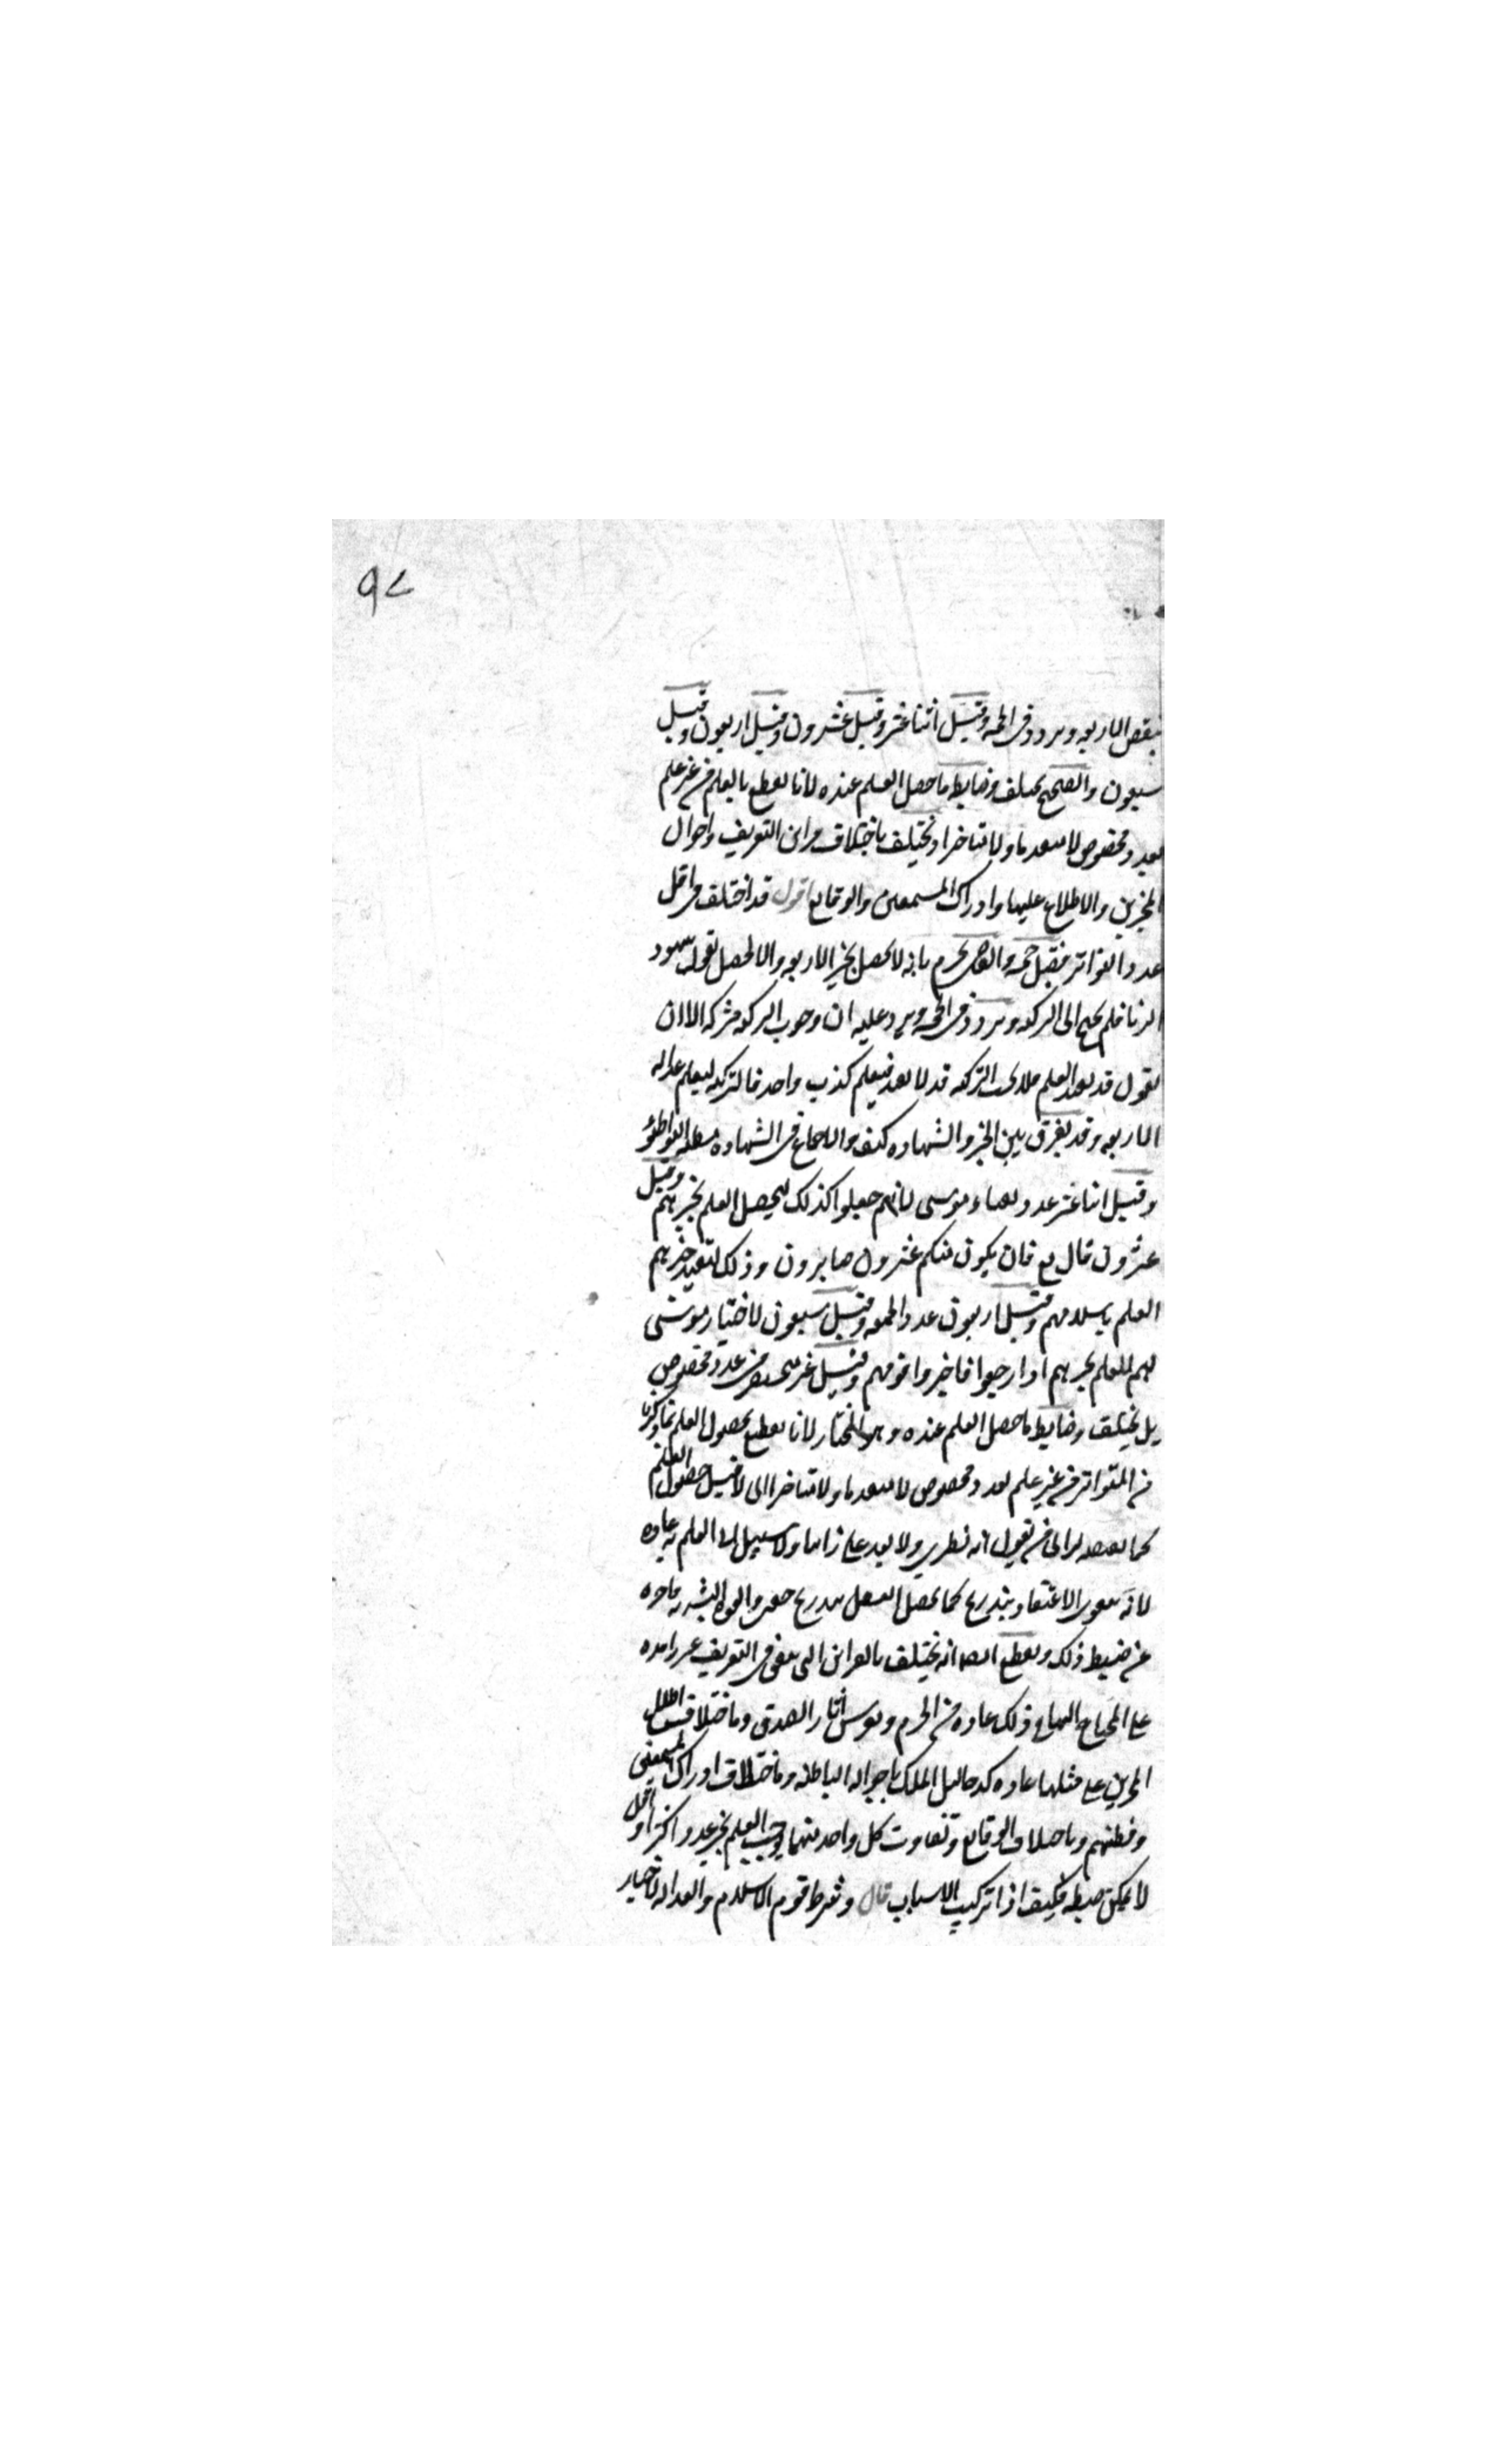 ٩٧
بنقص الاربعه ويردد فى الخمسه وقيل اثنا عشر وقيل عشرون وقيل اربعون وقيل
سبعون والصحيح يختلف وضابطه ما حصل العلم عنده لانا نقطع بالعلم من غير علم
بعدد مخصوص لا متقدما ولا متاخرا ويختلف باختلاف قراين التعريف واحوال
المخبرين والاطلاع عليها وادراك المستمعين والوقايع اقول قد اختلف فى اقل
عدد التواتر فقيل خمسه والقاضى جزم بانه لا يحصل بخبر الاربعه والا لحصل بقول شهود
الزنا فلم يحتج الى التزكيه وتردد فى الخمسه ويرد عليه ان وجوب التزكيه مشتركه الا ان
يقول قد يفيد العلم فلا يجب التزكيه قد لا يفيد فيعلم كذب واحد فالتزكيه ليعلم عداله
الاربعه وقد يفرق بين الخبر والشهاده كيف والاجتماع فى الشهاده مظنه التواطؤ
وقيل اثنا عشر عدد نقباء موسى لانهم جعلوا كذلك ليحصل العلم بخبرهم وقيل
عشرون قال تع فان يكون منكم عشرون صابرون وذلك لتفيد خبرهم
العلم باسلامهم وقيل اربعون عدد الجمعه وقيل سبعون لاختيار موسى
لهم للعلم بخبرهم اذا رجعوا فاخبروا قومهم وقيل غير منحصر فى عدد مخصوص
بل يختلف وضابطه ما حصل العلم عنده وهو المختار لانا نقطع بحصول العلم بما ذكرنا
من المتواتر من غير علم بعدد مخصوص لا متقدما ولا متاخرا الى لا قبل حصول العلم
كما يقتضيه راى من يقول انه نظرى ولا بعد على راينا ولا سبيل الى العلم به عاده
لانه يتقوى الاعتقاد بتدريج كما يحصل العقل بتدريج خفى والقوه البشريه قاصره
عن ضبط ذلك ونقطع ايضا انه يختلف بالقراين التى تتفق فى التعريف غير زايده
على المحتاج اليها فى ذلك عاده من الجزم وتفرس اثار الصدق وباختلاف اطلاع
المخبرين على مثلها عاده كدخاليل الملك باحواله الباطنه وباختلاف ادراك المستمعين
وفطنهم وباختلاف الوقايع وتفاوت كل واحد منها يوجب العلم بخبر عدد اكثر او اقل
لا يمكن ضبطه فكيف اذا تركبت الاسباب قال وشرط قوم الاسلام والعداله لاخبار